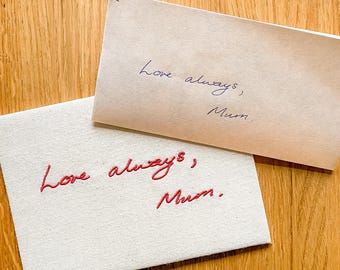 Love always,
Mum.
Love always,
Mum.